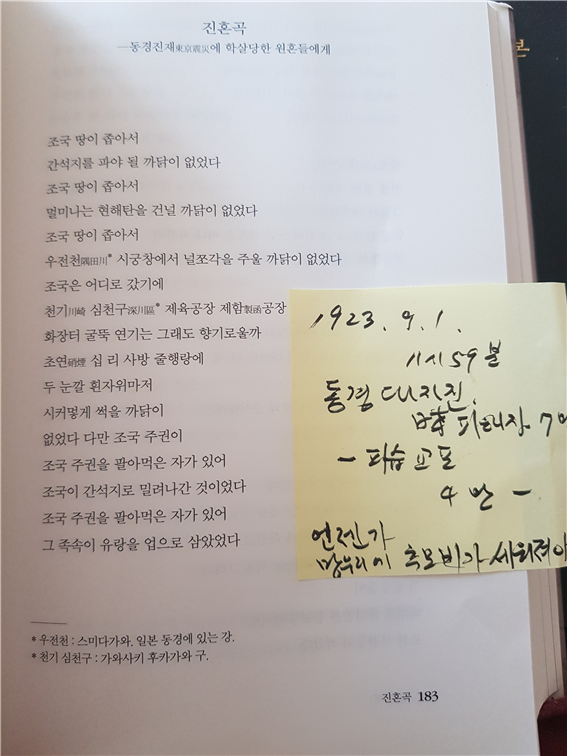 진혼곡
—동경진재東京震災에 학살당한 원혼들에게
조국 땅이 좁아서
간석지를 파야 될 까닭이 없었다
조국 땅이 좁아서
멀미나는 현해탄을 건널 까닭이 없었다
조국 땅이 좁아서
우전천隅田川* 시궁창에서 널쪼각을 주울 까닭이 없었다
조국은 어디로 갔기에
천기川崎 심천구深川區* 제육공장 제함製函공장
화장터 굴뚝 연기는 그래도 향기로울까
초연硝煙 십 리 사방 줄행랑에
두 눈깔 흰자위마저
시커멓게 썩을 까닭이
없었다 다만 조국 주권이
조국 주권을 팔아먹은 자가 있어
조국이 간석지로 밀려나간 것이었다
조국 주권을 팔아먹은 자가 있어
그 족속이 유랑을 업으로 삼았었다
*우전천 : 스미다가와. 일본 동경에 있는 강.
*천기 심천구 : 가와사키 후카가와 구.
진혼곡 183
본
1923. 9. 1.
11시 59분
동경 대지진.
피해자 7
— 피습 교포
4만 —
언젠가
망우리에 추모비가 세워져야